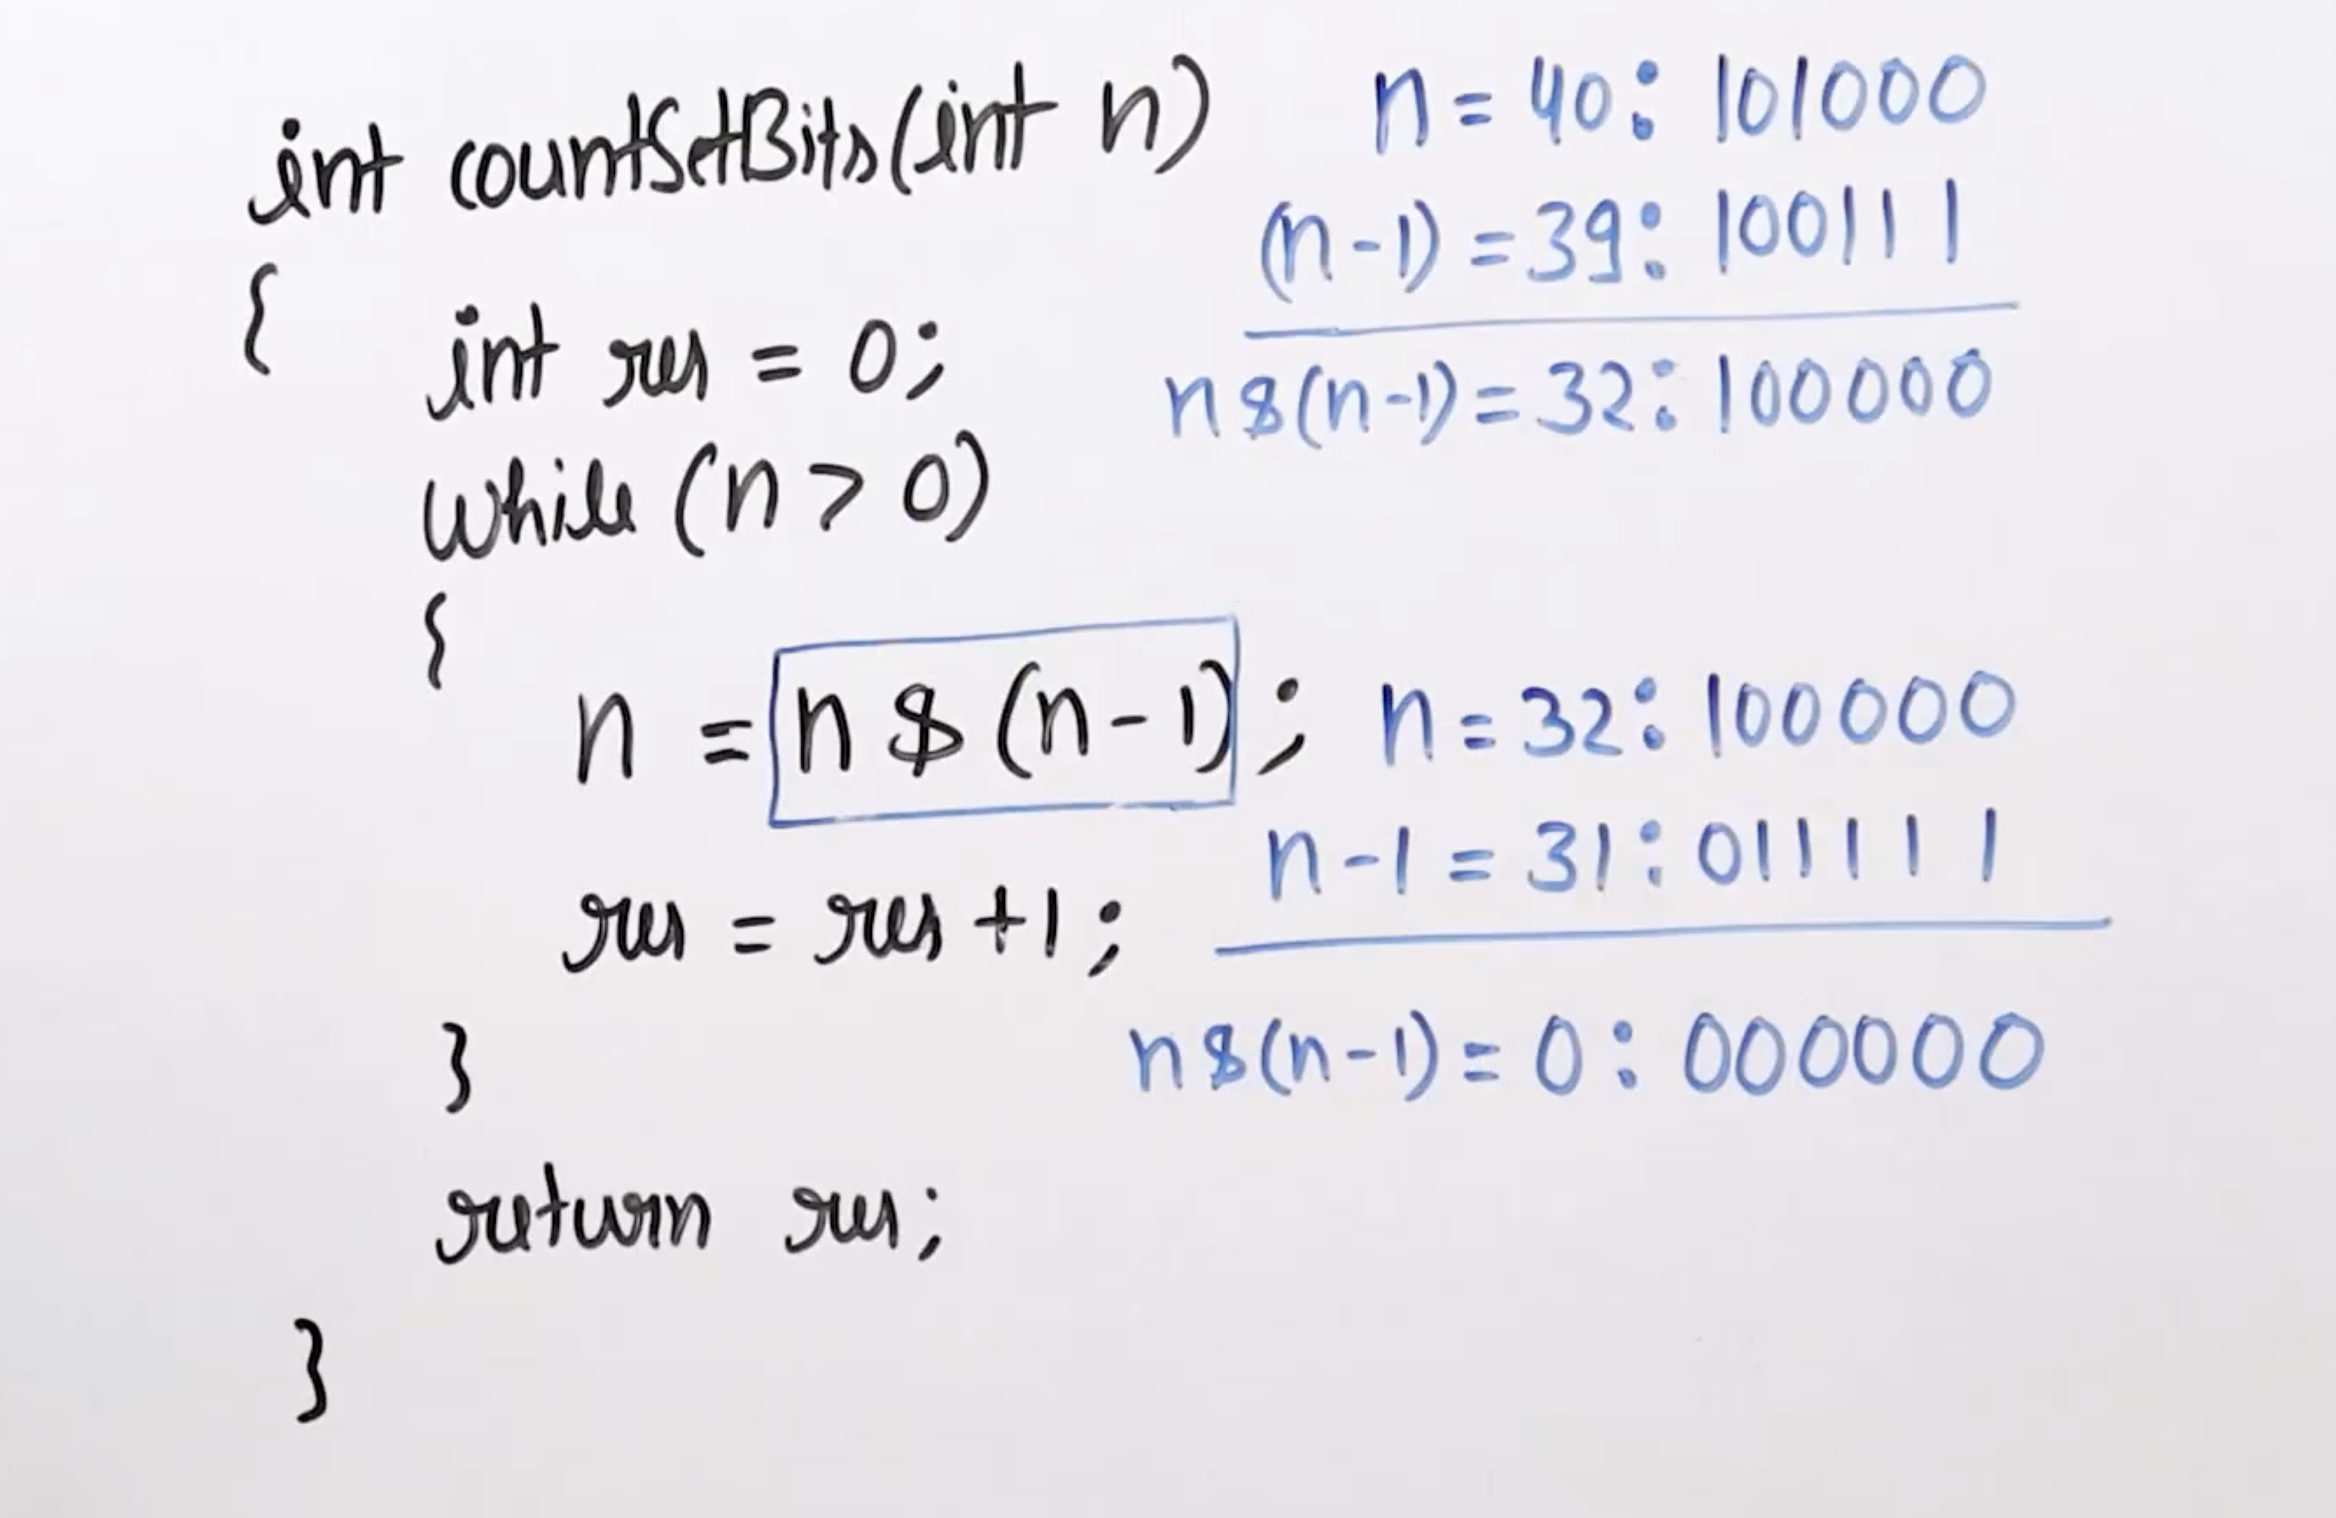 int countSetBits(int n)
{
int res = 0;
while (n > 0)
{
n = n & (n-1);
res = res +1;
}
return res;
}
n = 40: 101000
(n-1) = 39: 100111
n&(n-1) = 32: 100000
n = 32: 100000
n-1 = 31: 011111
n&(n-1) = 0: 000000